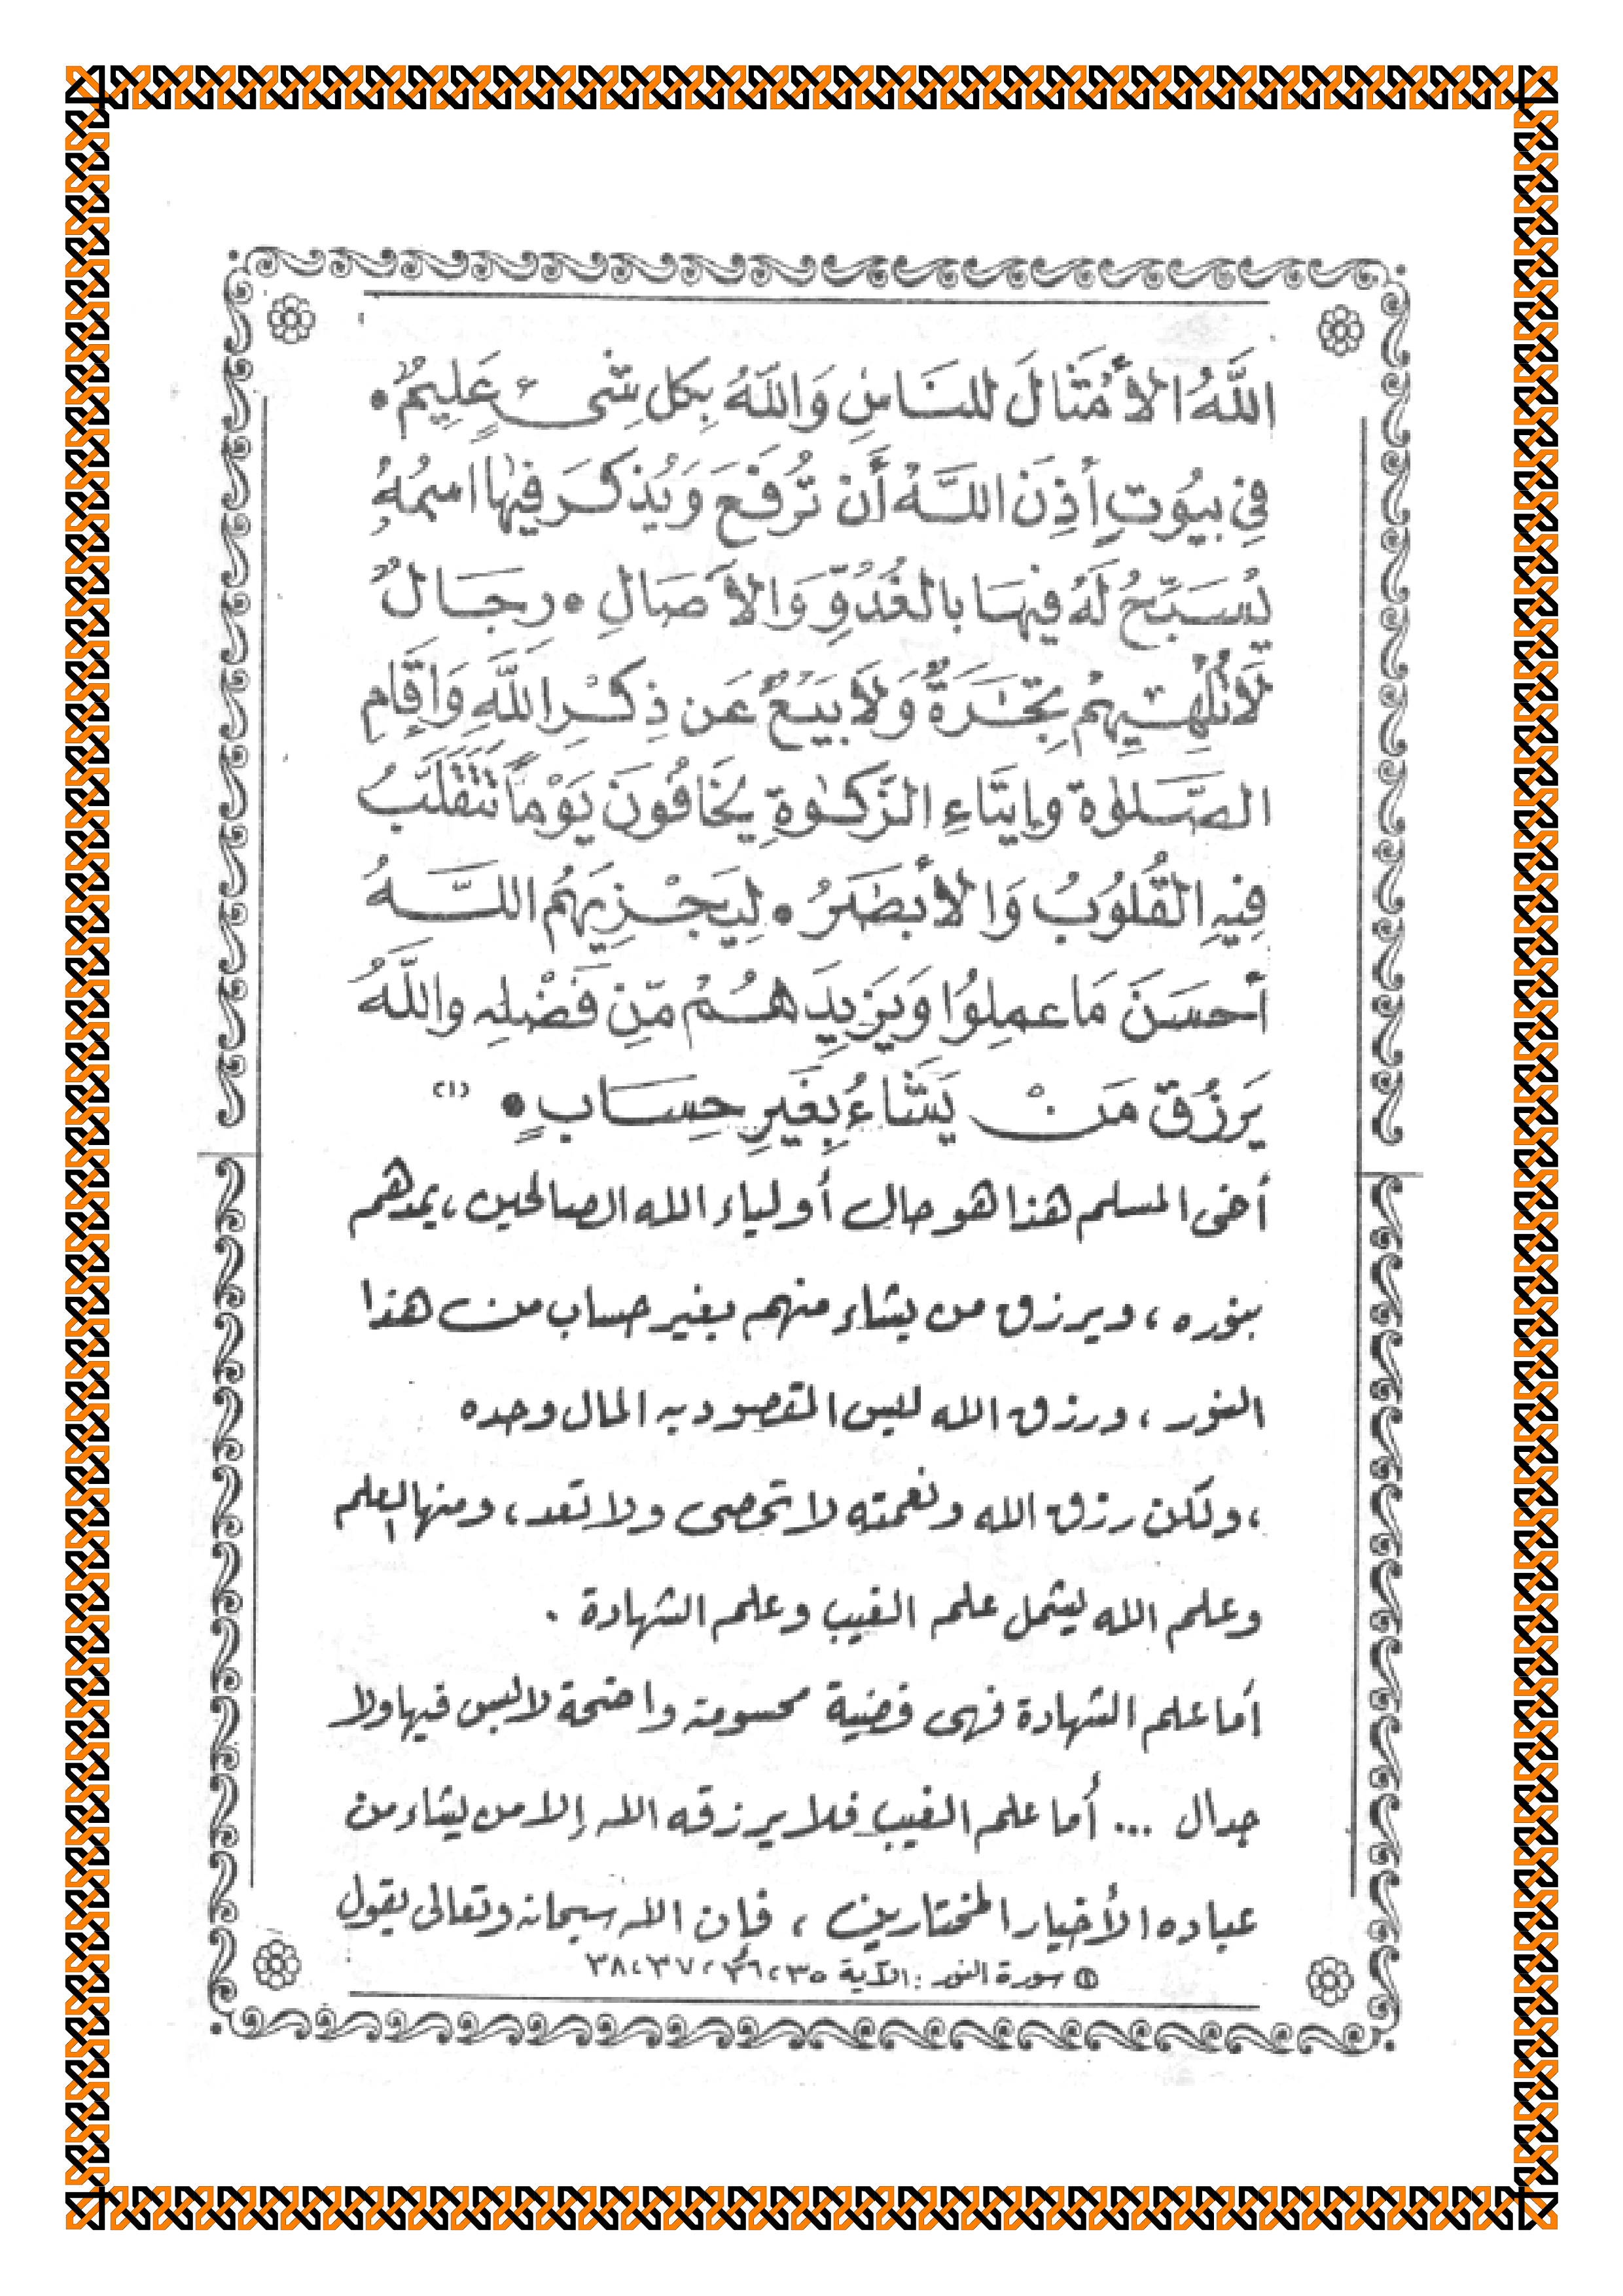 اللَّهُ الأَمْثَالَ لِلنَّاسِ وَاللَّهُ بِكُلِ شَىءٍ عَلِيمٌ •
فِى بيُوتٍ أَذِنَ اللَّهُ أَن تُرفَعَ وَيُذكَرَ فِيهَا اسمُهُ
يُسَبِّحُ لَهُ فِيهَا بالغُدُوِّ وَالأَصَالِ • رِجَالٌ
لَّا تُلْهِيهِمْ تِجَٰرَةٌ وَلَا بَيَعٌ عَن ذِكْرِ اللَّهِ وَإِقَامِ
الصَّلوٰة وإيتَاءِ الزَّكَوٰةِ يَخَافُونَ يَوْمًا تَتَقَلَّبُ
فِيهِ القُلُوبُ وَالأَبصَٰرُ • لِيَجْزِيَهُم اللَّهُ
أَحسَنَ مَا عمِلُوا وَيَزِيدَهُمْ مِّن فَضْلِه واللَّهُ
يَرزُقُ مَنْ يَشَاءُ بِغَيرِ حِسَابٍ • (١)
أخى المسلم هذا هو حال أولياء الله الصالحين ، يمدهم
بنوره ، ويرزق من يشاء منهم بغير حساب من هذا
النور ، ورزق الله ليس المقصود به المال وحده
، ولكن رزق الله ونعمته لا تحصى ولا تعد ، ومنها العلم
وعلم الله يشمل علم الغيب وعلم الشهادة .
أما علم الشهادة فهى قضية محسومة واضحة لا لبس فيها ولا
جدال ... أما علم الغيب فلا يرزقه الله إلا من يشاء من
عباده الأخيار المختارين ، فإن الله سبحانه وتعالى يقول
(١) سورة النور : الآية ٣٥ ، ٣٦ ، ٣٧ ، ٣٨